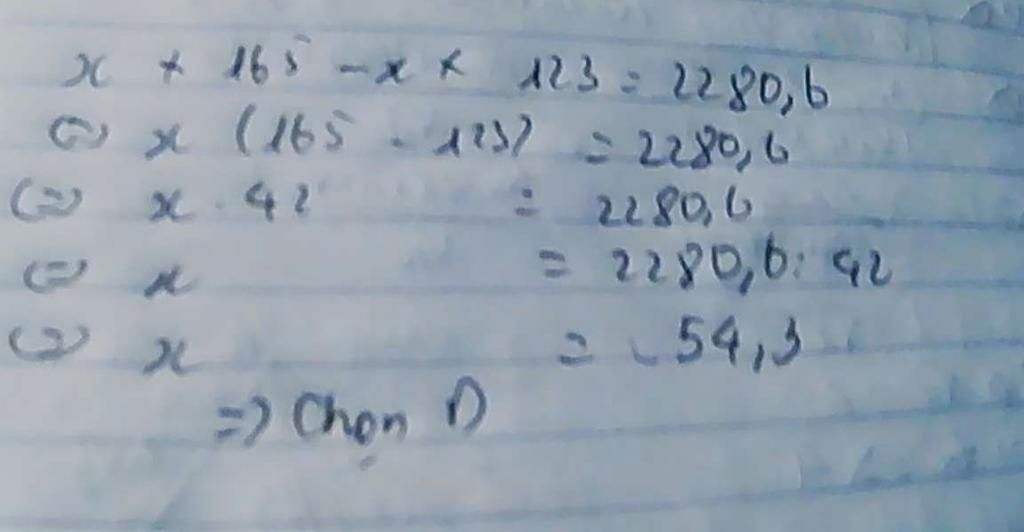 x × 165 - x × 123 = 2280,6
(=) x (165 - 123) = 2280,6
(=) x . 42 = 2280,6
(=) x = 2280,6 : 42
(=) x = 54,3
=) Chọn D